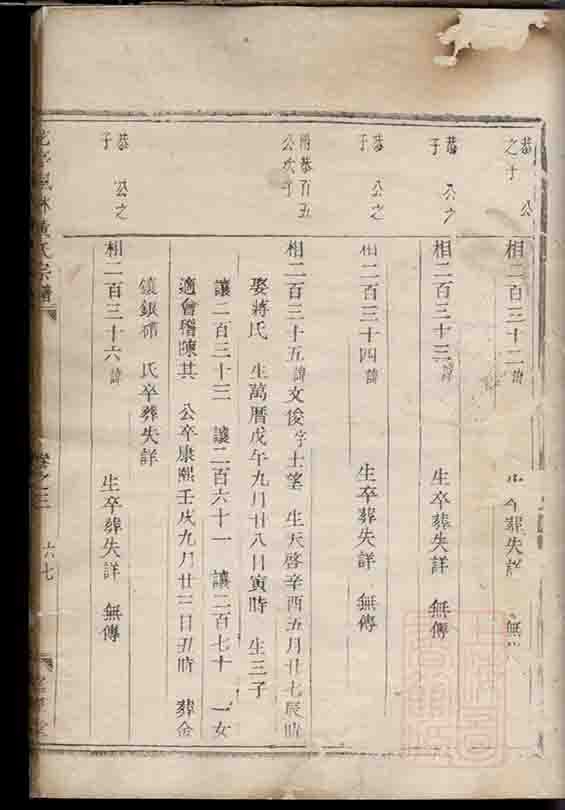 恭 公
之子
相二百三十二諱 生卒葬失詳 無
恭 公之
子
相二百三十三諱 生卒葬失詳 無傳
恭 公之
子
相二百三十四諱 生卒葬失詳 無傳
恭百五
公次子
相二百三十五諱文俊字士望 生天啓辛酉五月廿七辰時
娶蔣氏 生萬曆戊午九月廿八日寅時 生三子
讓二百三十三 讓二百六十一 讓二百七十 一女
適會稽陳其 公卒康熙壬戌九月廿三日丑時 葬金
鐘銀 氏卒葬失詳
恭 公之
子
相二百三十六諱 生卒葬失詳 無傳
氏宗譜 卷之三 六七 堂